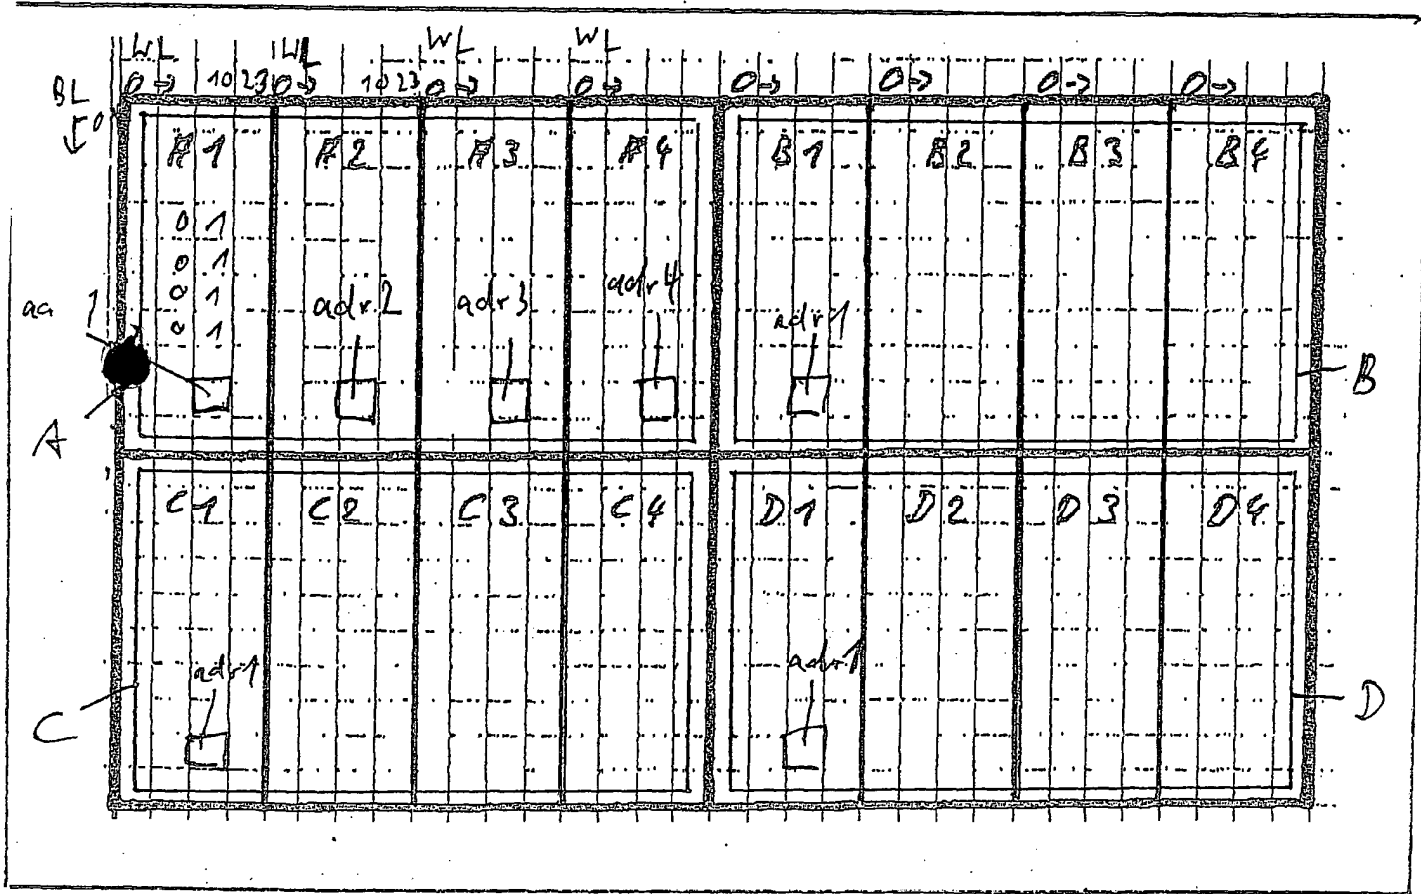 WL WL WL WL
0→ 1023 0→ 1023 0→ 0→ 0→ 0→ 0→ 0→
BL
0
A1 A2 A3 A4 B1 B2 B3 B4
01
01
01
01
adr2 adr3 adr4 adr1
B
A
C1 C2 C3 C4 D1 D2 D3 D4
adr1 adr1
C D